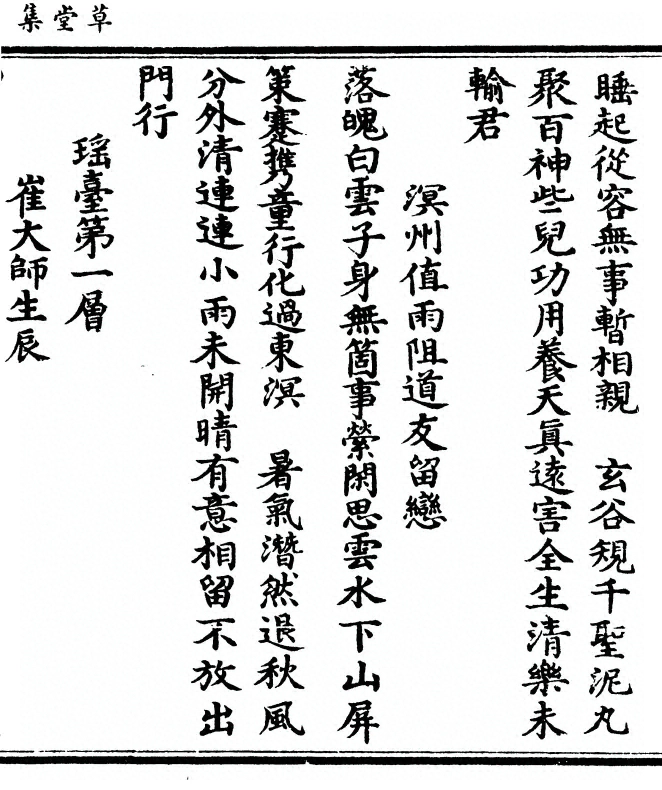 草堂集
睡起從容無事暫相親　玄谷䂓千聖泥丸
聚百神些兒功用養天眞遠害全生清樂未
輸君
溟州值雨阻道友留戀
落魄白雲子身無箇事縈閑思雲水下山屏
策蹇携童行化過東溟　暑氣潛然退秋風
分外清連連小雨未開晴有意相留不放出
門行
瑶臺第一層
崔大師生辰